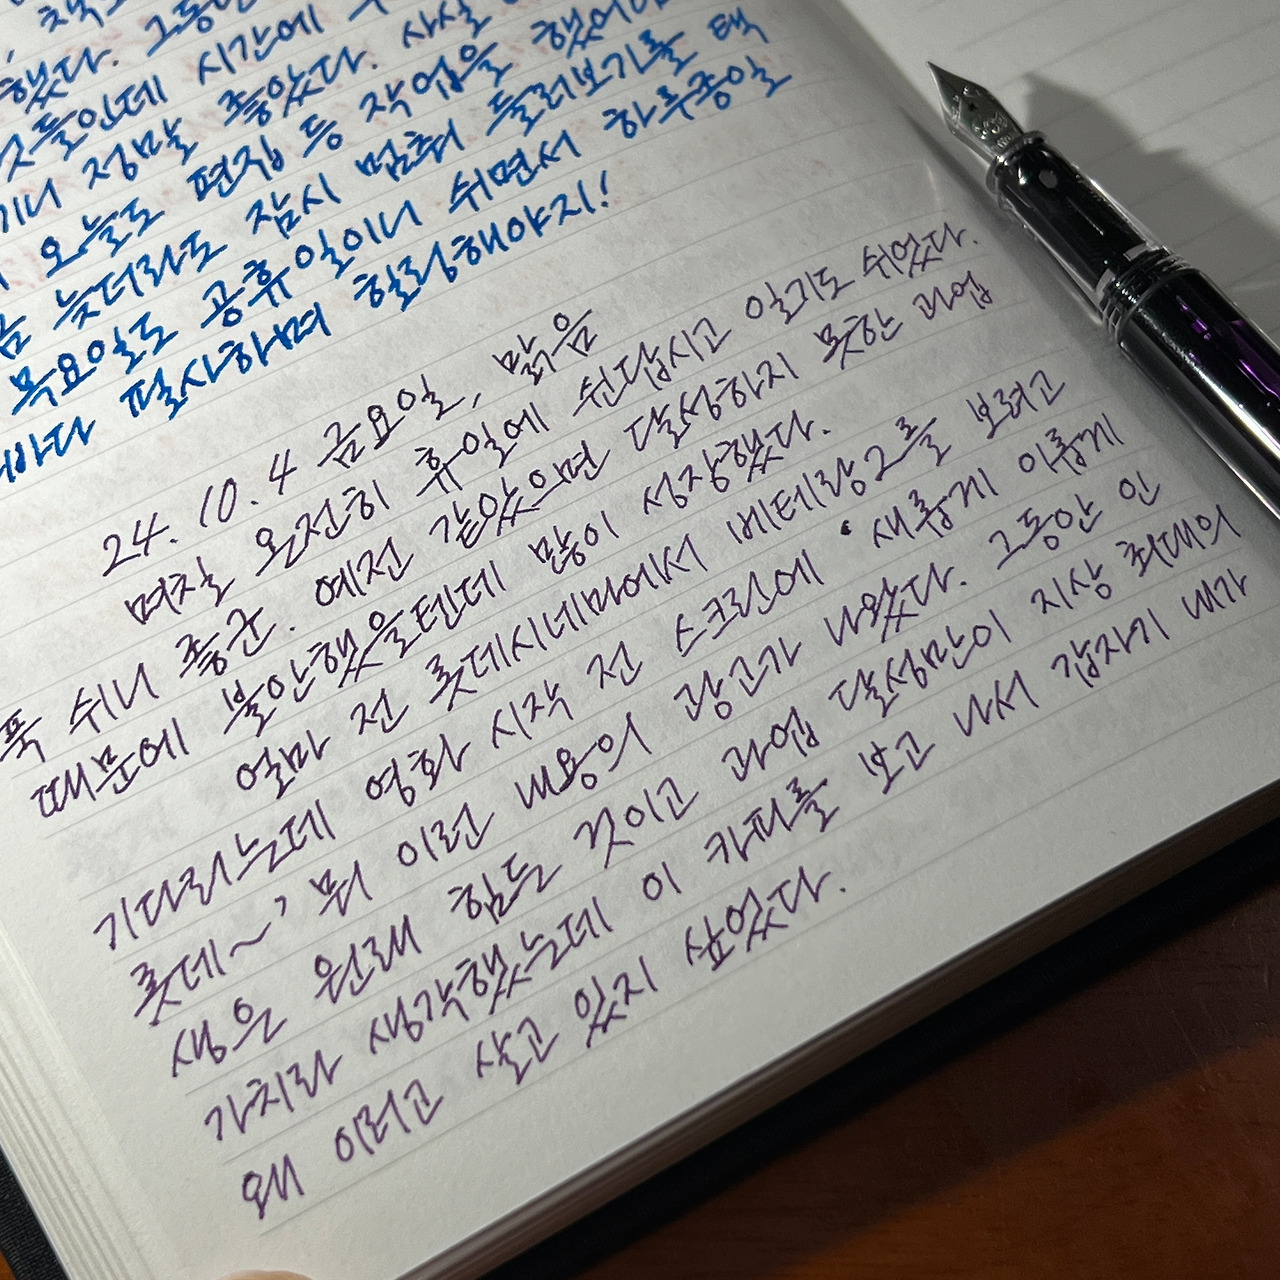 했다. 그동안
것들인데 시간에
정말 좋았다. 사실
오늘도 편집 등 작업을 했어야
늦더라도 잠시 멈춰 둘러보기를 택
목요일도 공휴일이니 쉬면서 하루종일
필사하며 힐링해야지!
24. 10. 4 금요일, 맑음
며칠 온전히 휴일에 쉰답시고 일기도 쉬었다.
푹 쉬니 좋군. 예전 같았으면 달성하지 못한 과업
때문에 불안했을텐데 많이 성장했다.
얼마 전 롯데시네마에서 베테랑2를 보려고
기다리는데 영화 시작 전 스크린에 '새롭게 이롭게
롯데~' 뭐 이런 내용의 광고가 나왔다. 그동안 인
생은 원래 힘든 것이고 과업 달성만이 지상 최대의
가치라 생각했는데 이 카피를 보고 나서 갑자기 내가
왜 이러고 살고 있지 싶었다.